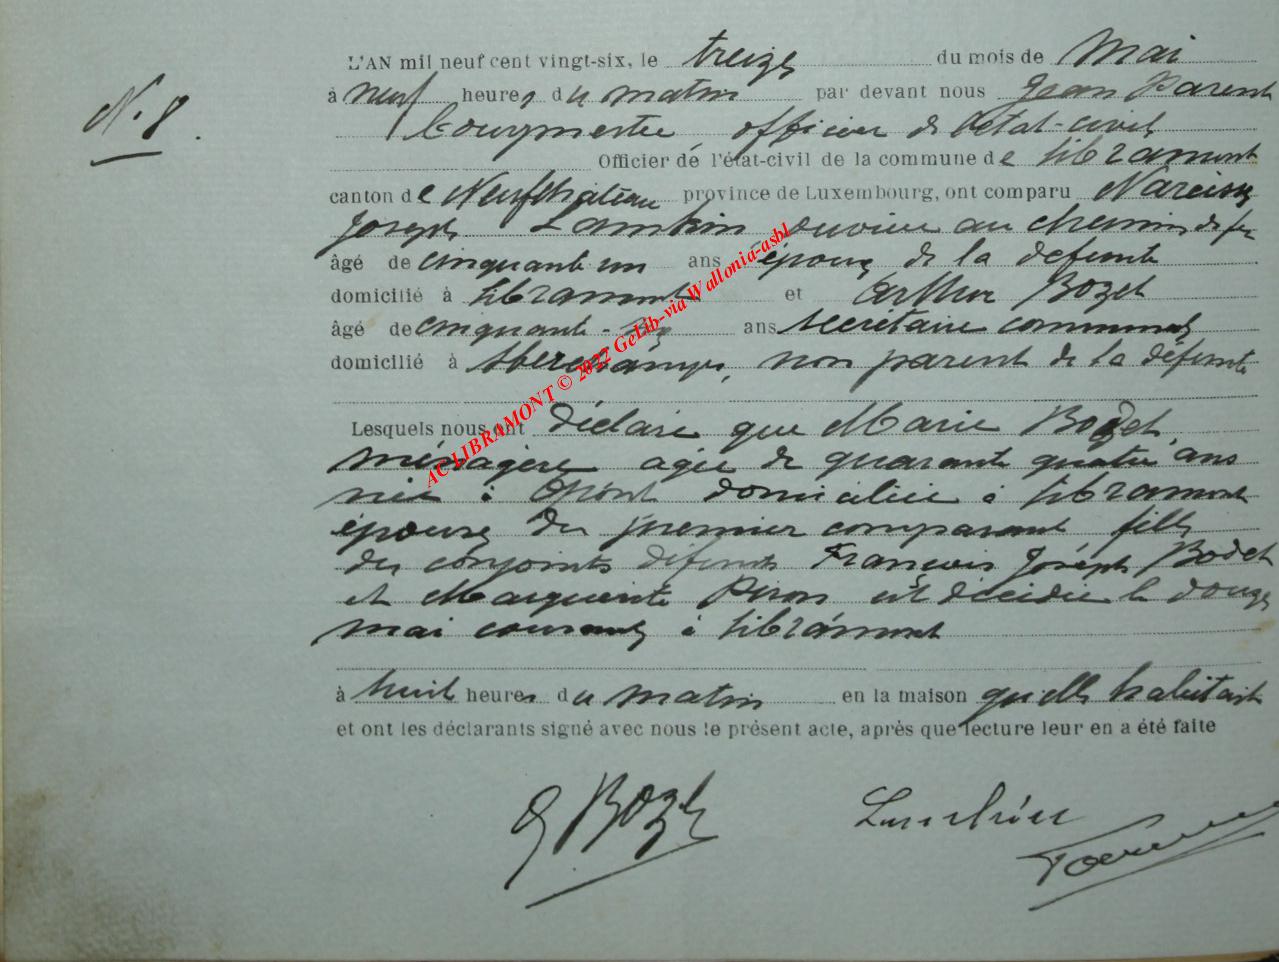 N. 8.
L'AN mil neuf cent vingt-six, le treize du mois de Mai
à neuf heures du matin par devant nous Jean Parent
bourgmestre officier de l'état-civil
Officier de l'état-civil de la commune de Libramont
canton de Neufchâteau province de Luxembourg, ont comparu Narcisse
Joseph Lambin ouvrier au chemin de fer
âgé de cinquante un ans époux de la défunte
domicilié à Libramont et Arthur Bozet
âgé de cinquante-six ans secrétaire communal
domicilié à non parent de la défunte
Lesquels nous ont déclaré que Marie Bozet,
ménagère agée de quarante quatre ans
née à Opont domiciliée à Libramont
épouse du premier comparant fille
des conjoints défunts François Joseph Bozet
et Marguerite Piron est décédée le douze
mai courant à Libramont
à huit heures du matin en la maison qu'elle habitait
et ont les déclarants signé avec nous le présent acte, après que lecture leur en a été faite
A Bozet Lambin
AC LIBRAMONT © 2022 GeLib-via Wallonia-asbl